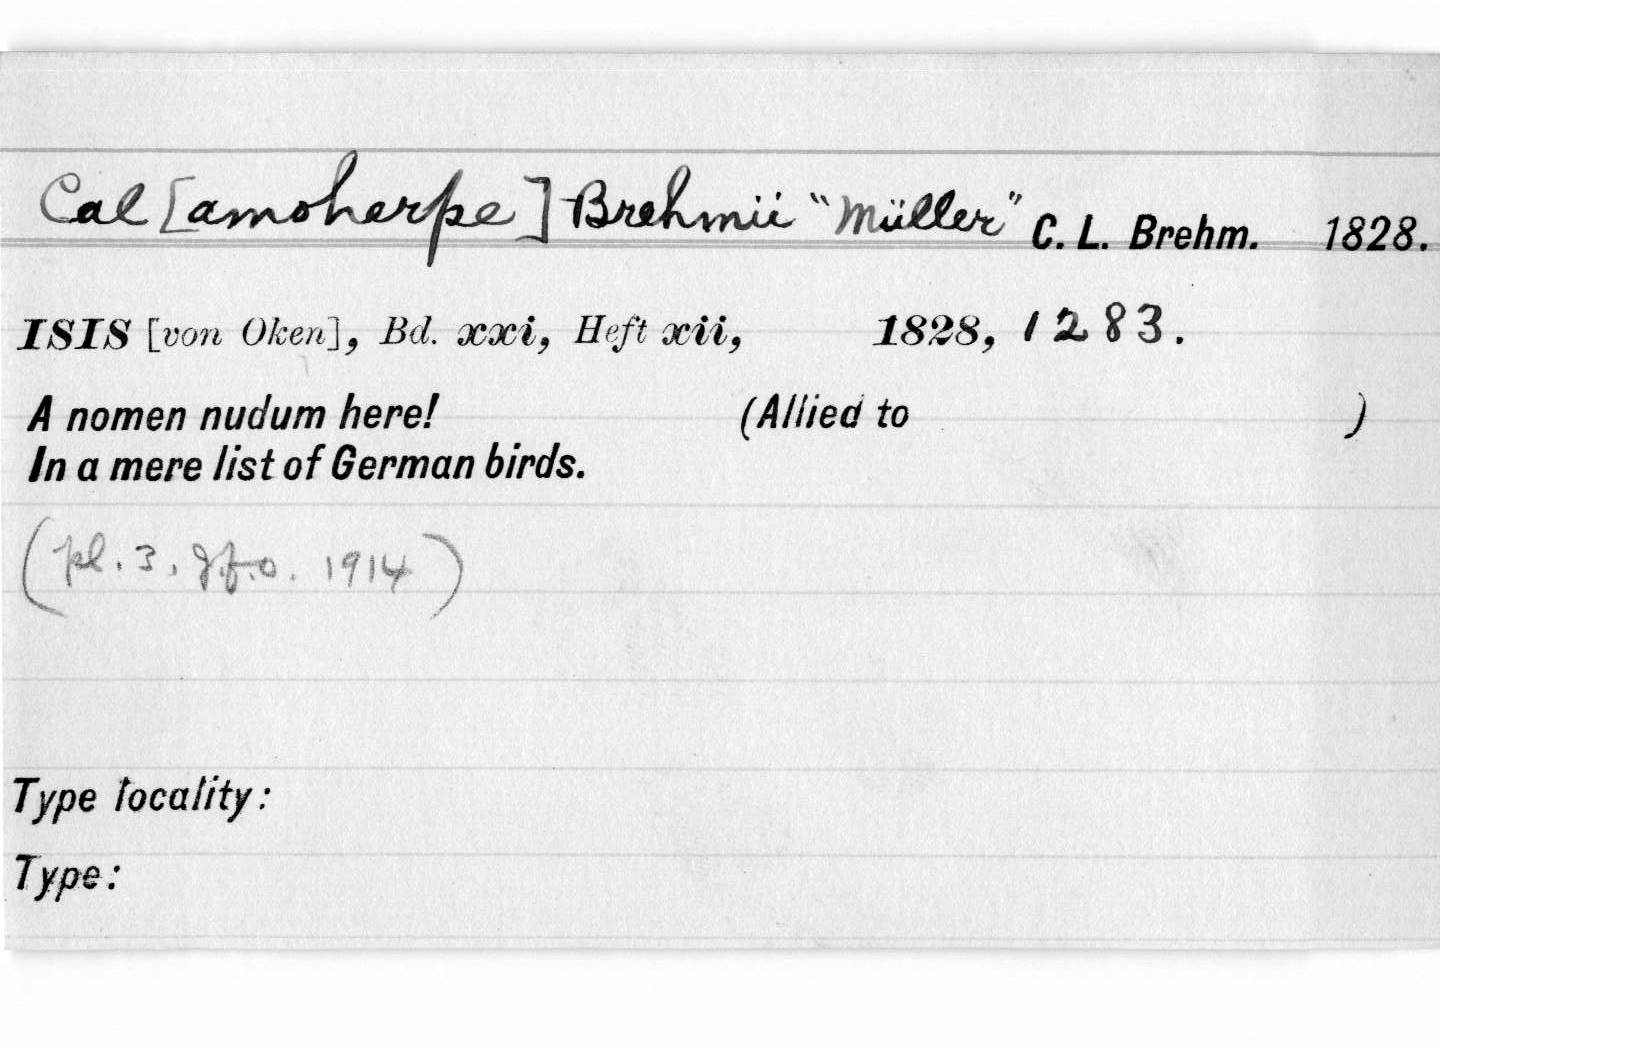 Cal[amoherpe] Brehmii "Müller" C. L. Brehm. 1828.
ISIS [von Oken], Bd. xxi, Heft xii, 1828, 1283.
A nomen nudum here! (Allied to )
In a mere list of German birds.
(pl. 3, J.f.O. 1914)
Type locality:
Type: